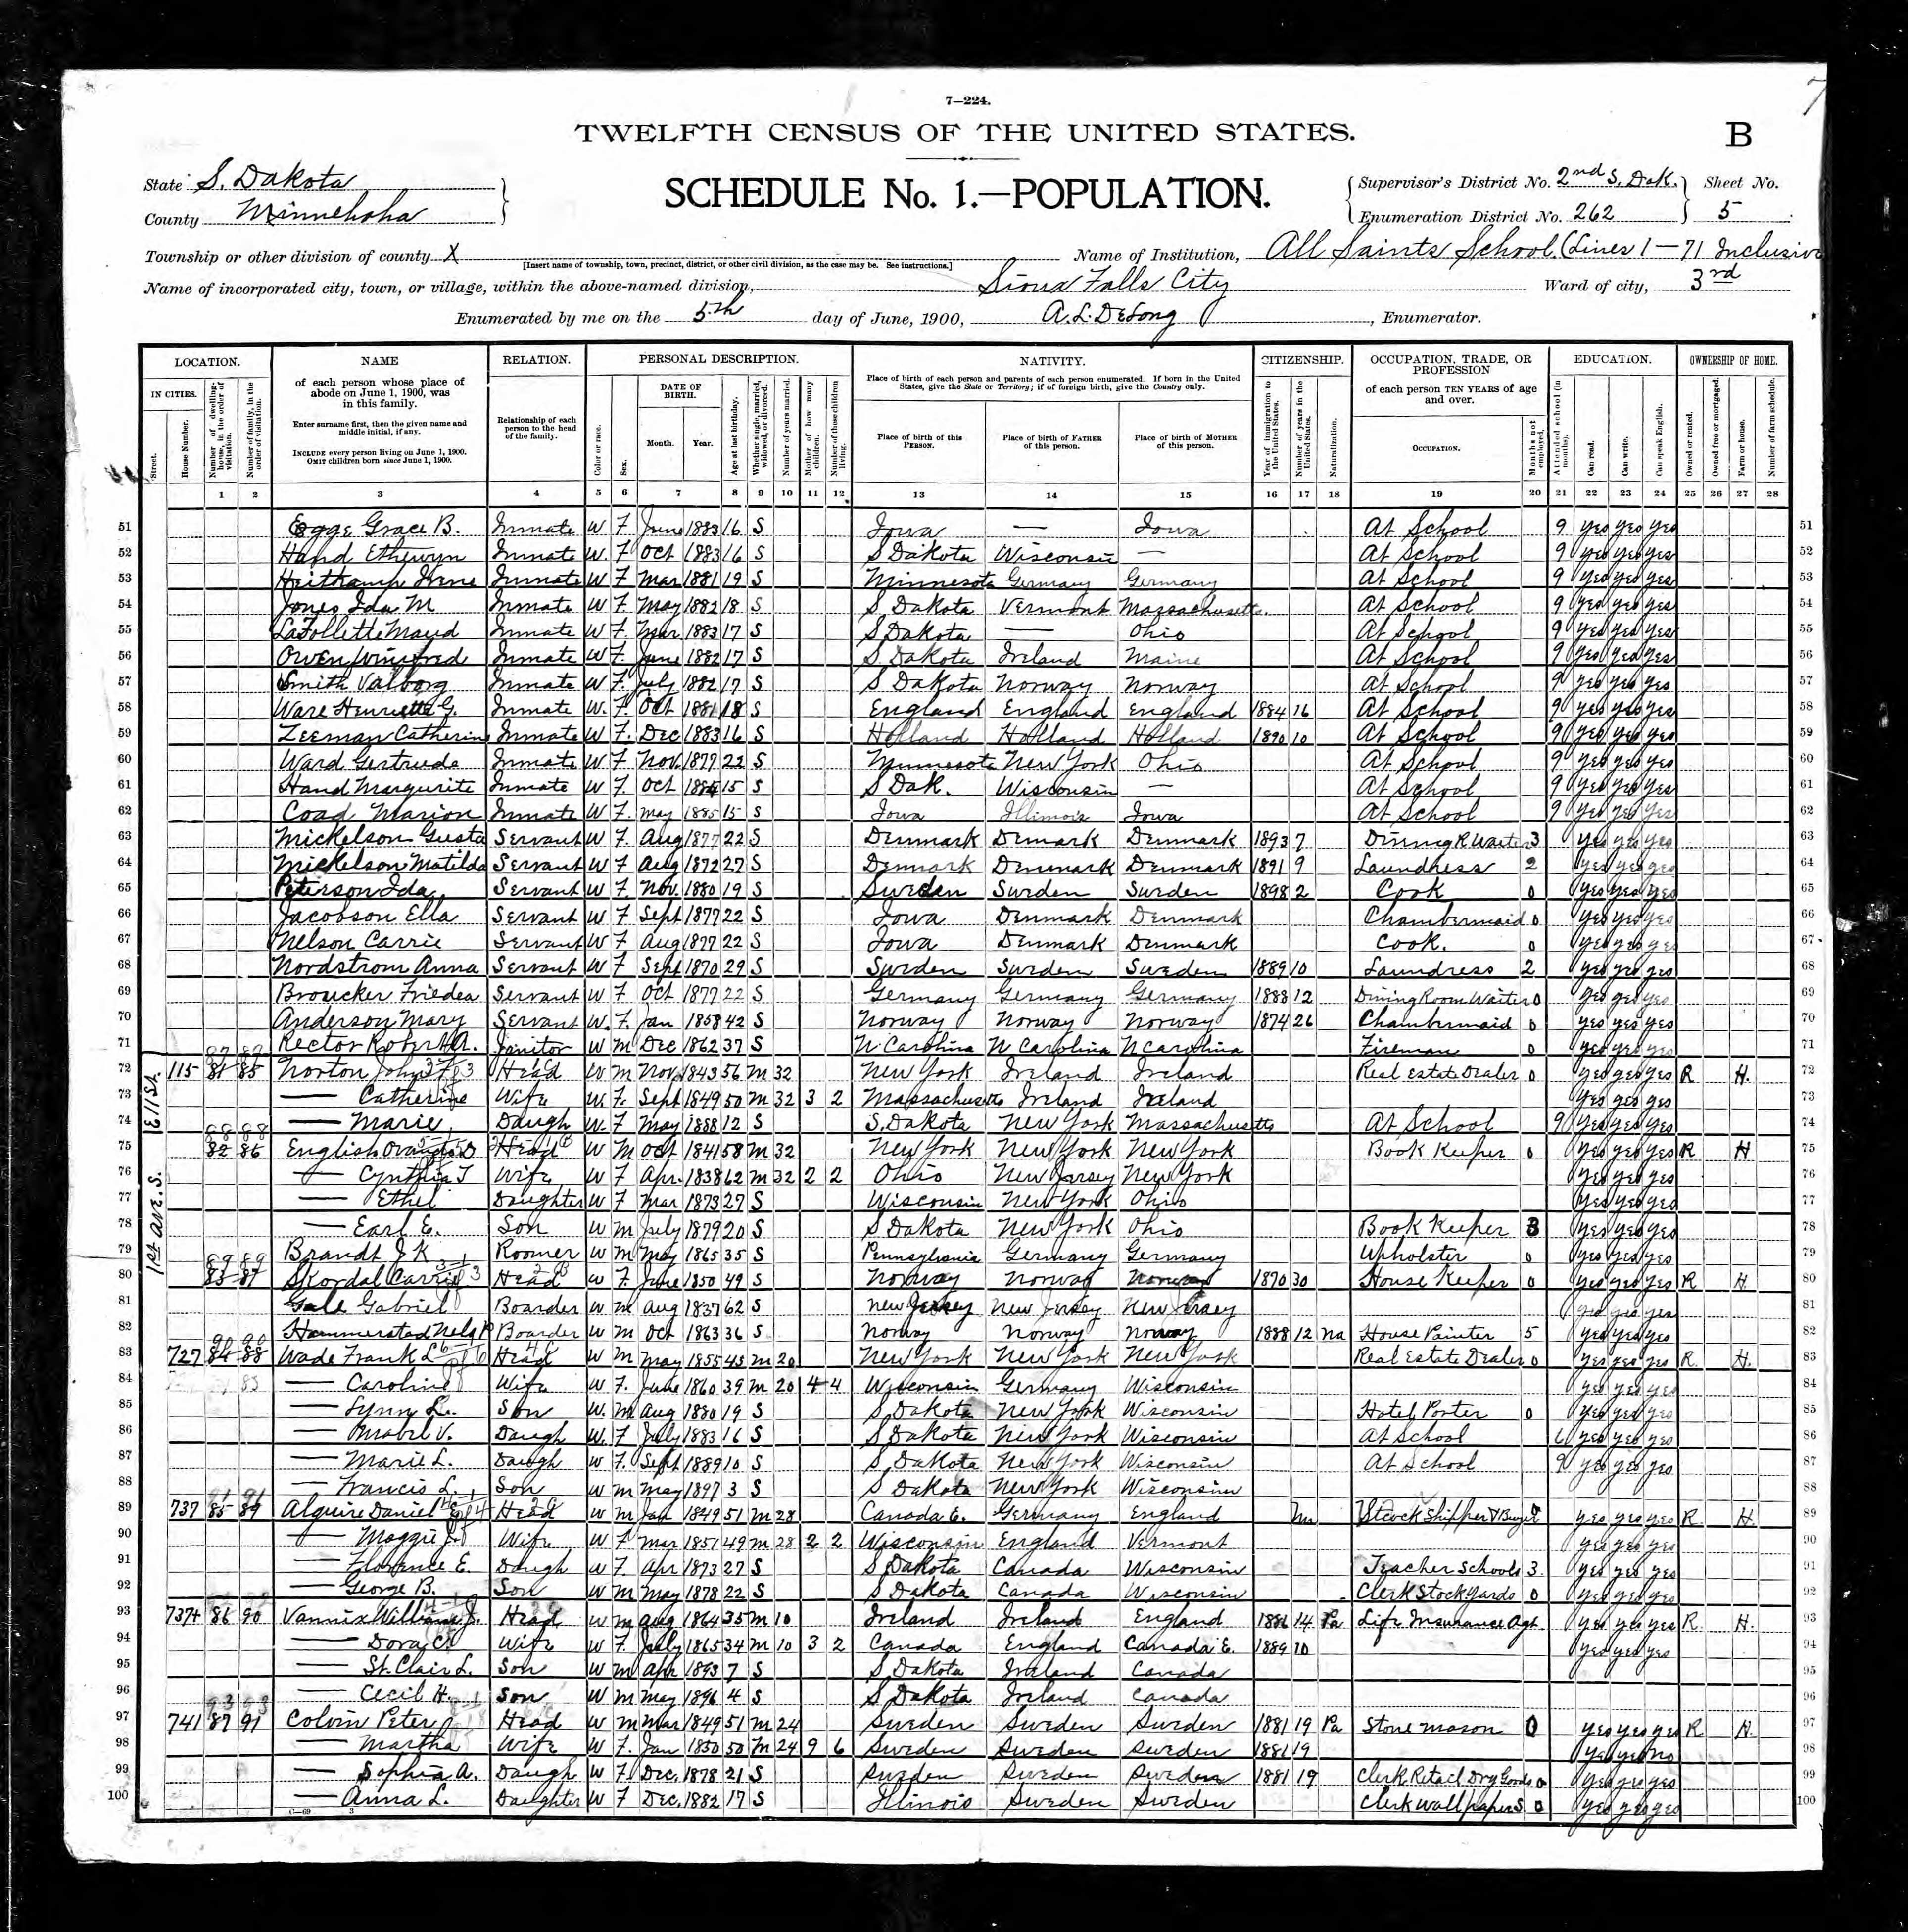 7—224.
TWELFTH CENSUS OF THE UNITED STATES.
B
7
State S. Dakota
County Minnehaha
SCHEDULE No. 1.—POPULATION.
Supervisor's District No. 2nd S. Dak. Sheet No.
Enumeration District No. 262 5
Township or other division of county X Name of Institution, All Saints School (Lines 1 — 71 Inclusive
[Insert name of township, town, precinct, district, or other civil division, as the case may be. See instructions.]
Name of incorporated city, town, or village, within the above-named division, Sioux Falls City Ward of city, 3rd
Enumerated by me on the 5th day of June, 1900, A. L. DeLong, Enumerator.
LOCATION. NAME RELATION. PERSONAL DESCRIPTION. NATIVITY. CITIZENSHIP. OCCUPATION, TRADE, OR PROFESSION EDUCATION. OWNERSHIP OF HOME.
IN CITIES. Street. House Number. Number of dwelling-house, in the order of visitation. Number of family, in the order of visitation.
of each person whose place of abode on June 1, 1900, was in this family.
Enter surname first, then the given name and middle initial, if any.
INCLUDE every person living on June 1, 1900.
OMIT children born since June 1, 1900.
Relationship of each person to the head of the family.
Color or race. Sex. DATE OF BIRTH. Month. Year. Age at last birthday. Whether single, married, widowed, or divorced. Number of years married. Mother of how many children. Number of these children living.
Place of birth of each person and parents of each person enumerated. If born in the United States, give the State or Territory; if of foreign birth, give the Country only.
Place of birth of this PERSON. Place of birth of FATHER of this person. Place of birth of MOTHER of this person.
Year of immigration to the United States. Number of years in the United States. Naturalization.
of each person TEN YEARS of age and over.
OCCUPATION. Months not employed.
Attended school (in months). Can read. Can write. Can speak English.
Owned or rented. Owned free or mortgaged. Farm or house. Number of farm schedule.
1 2 3 4 5 6 7 8 9 10 11 12 13 14 15 16 17 18 19 20 21 22 23 24 25 26 27 28
51 Egge Grace B. Inmate W F June 1883 16 S Iowa — Iowa At School 9 yes yes yes 51
52 Hand Ethewyn Inmate W. F Oct 1883 16 S S Dakota Wisconsin — At School 9 yes yes yes 52
53 Heitkamp Irene Inmate W F Mar 1881 19 S Minnesota Germany Germany At School 9 yes yes yes 53
54 Jones Ida M Inmate W F. May 1882 18 S S Dakota Vermont Massachusetts. At School 9 yes yes yes 54
55 LaFollette Maud Inmate W F. Mar. 1883 17 S S Dakota — Ohio At School 9 yes yes yes 55
56 Owen Winifred Inmate W F. June 1882 17 S S. Dakota Ireland Maine At School 9 yes yes yes 56
57 Smith Valborg Inmate W F. July 1882 17 S S Dakota Norway Norway At School 9 yes yes yes 57
58 Ware Henriette G. Inmate W. F. Oct 1881 18 S England England England 1884 16 At School 9 yes yes yes 58
59 Zeeman Catherine Inmate W F. Dec 1883 16 S Holland Holland Holland 1890 10 At School 9 yes yes yes 59
60 Ward Gertrude Inmate W F Nov. 1877 22 S Minnesota New York Ohio At School 9 yes yes yes 60
61 Hand Margurite Inmate W F. Oct 1884 15 S S Dak. Wisconsin — At School 9 yes yes yes 61
62 Coad Marion Inmate W F. May 1885 15 S Iowa Illinois Iowa At School 9 yes yes yes 62
63 Mickelson Gusta Servant W F. Aug 1877 22 S Denmark Denmark Denmark 1893 7 Dining R Waiter 3 yes yes yes 63
64 Mickelson Matilda Servant W F Aug 1872 27 S Denmark Denmark Denmark 1891 9 Laundress 2 yes yes yes 64
65 Peterson Ida Servant W F. Nov. 1880 19 S Sweden Sweden Sweden 1898 2 Cook 0 yes yes yes 65
66 Jacobson Ella Servant W F Sept 1877 22 S Iowa Denmark Denmark Chambermaid 0 yes yes yes 66
67 Nelson Carrie Servant W F Aug 1877 22 S Iowa Denmark Denmark Cook. 0 yes yes yes 67
68 Nordstrom Anna Servant W F Sept 1870 29 S Sweden Sweden Sweden 1889 10 Laundress 2 yes yes yes 68
69 Broucker Friedea Servant W F Oct 1877 22 S Germany Germany Germany 1888 12 Dining Room Waiter 0 yes yes yes 69
70 Anderson Mary Servant W. F. Jan 1858 42 S Norway Norway Norway 1874 26 Chambermaid 0 yes yes yes 70
71 Rector Robert A. Janitor W M Dec 1862 37 S N Carolina N Carolina N Carolina Fireman 0 yes yes yes 71
E 11 St.
72 115 81 85 Norton John Head W M Nov. 1843 56 M 32 New York Ireland Ireland Real Estate Dealer 0 yes yes yes R H. 72
73 — Catherine Wife W. F. Sept 1849 50 M 32 3 2 Massachusetts Ireland Ireland yes yes yes 73
74 — Marie Daugh W. F May 1888 12 S S. Dakota New York Massachusetts At School 9 yes yes yes 74
75 82 86 English Head W M Oct 1841 58 M 32 New York New York New York Book Keeper 0 yes yes yes R H 75
1st Ave. S.
76 — Cynthia T Wife W F Apr. 1838 62 M 32 2 2 Ohio New Jersey New York yes yes yes 76
77 — Ethel Daughter W F Mar 1873 27 S Wisconsin New York Ohio yes yes yes 77
78 — Earl E. Son W M July 1879 20 S S Dakota New York Ohio Book Keeper 3 yes yes yes 78
79 Brandt J K Roomer W M May 1865 35 S Pennsylvania Germany Germany Upholster 0 yes yes yes 79
80 83 87 Skordal Carrie Head W F. June 1850 49 S Norway Norway Norway 1870 30 House Keeper 0 yes yes yes R H. 80
81 Gale Gabriel Boarder W M Aug 1837 62 S New Jersey New Jersey New Jersey yes yes yes 81
82 Hammerstad Nels P Boarder W M Oct 1863 36 S Norway Norway Norway 1888 12 Na House Painter 5 yes yes yes 82
83 727 84 88 Wade Frank L Head W M May 1855 45 M 20 New York New York New York Real Estate Dealer 0 yes yes yes R. H. 83
84 — Caroline Wife W F. June 1860 39 M 20 4 4 Wisconsin Germany Wisconsin yes yes yes 84
85 — Lynn L. Son W. M Aug 1880 19 S S Dakota New York Wisconsin Hotel Porter 0 yes yes yes 85
86 — Mabel V. Daugh W. F July 1883 16 S S Dakota New York Wisconsin At School 6 yes yes yes 86
87 — Marie L. Daugh W F. Sept 1889 10 S S Dakota New York Wisconsin At School 9 yes yes yes 87
88 — Francis L. Son W M May 1897 3 S S Dakota New York Wisconsin 88
89 737 85 89 Alguire Daniel Head W M Jan 1849 51 M 28 Canada E. Germany England Stock Shipper & Buyer 0 yes yes yes R. H. 89
90 — Maggie J. Wife W F Mar 1851 49 M 28 2 2 Wisconsin England Vermont yes yes yes 90
91 — Florence E. Daugh W F. Apr 1873 27 S S Dakota Canada Wisconsin Teacher Schools 3. yes yes yes 91
92 — George B. Son W M May 1878 22 S S Dakota Canada Wisconsin Clerk Stockyards 0 yes yes yes 92
93 86 90 Vannix William J. Head W M Aug 1864 35 M 10 Ireland Ireland England 1886 14 Pa Life Insurance Agt. yes yes yes R. H. 93
94 — Dora Wife W F. July 1865 34 M 10 3 2 Canada England Canada E. 1889 10 yes yes yes 94
95 — St. Clair L. Son W M Apr 1893 7 S S Dakota Ireland Canada 95
96 — Cecil H. Son W M May 1896 4 S S Dakota Ireland Canada 96
97 741 87 91 Colvin Peter Head W M Mar 1849 51 M 24 Sweden Sweden Sweden 1881 19 Pa Stone Mason 0 yes yes yes R H. 97
98 — Martha Wife W F. Jan 1850 50 M 24 9 6 Sweden Sweden Sweden 1881 19 yes yes no 98
99 — Sophia A. Daugh W F. Dec. 1878 21 S Sweden Sweden Sweden 1881 19 Clerk Retail Dry Goods 0 yes yes yes 99
100 — Anna L. Daughter W F Dec. 1882 17 S Illinois Sweden Sweden Clerk Wall paper S 0 yes yes yes 100
C—69 3